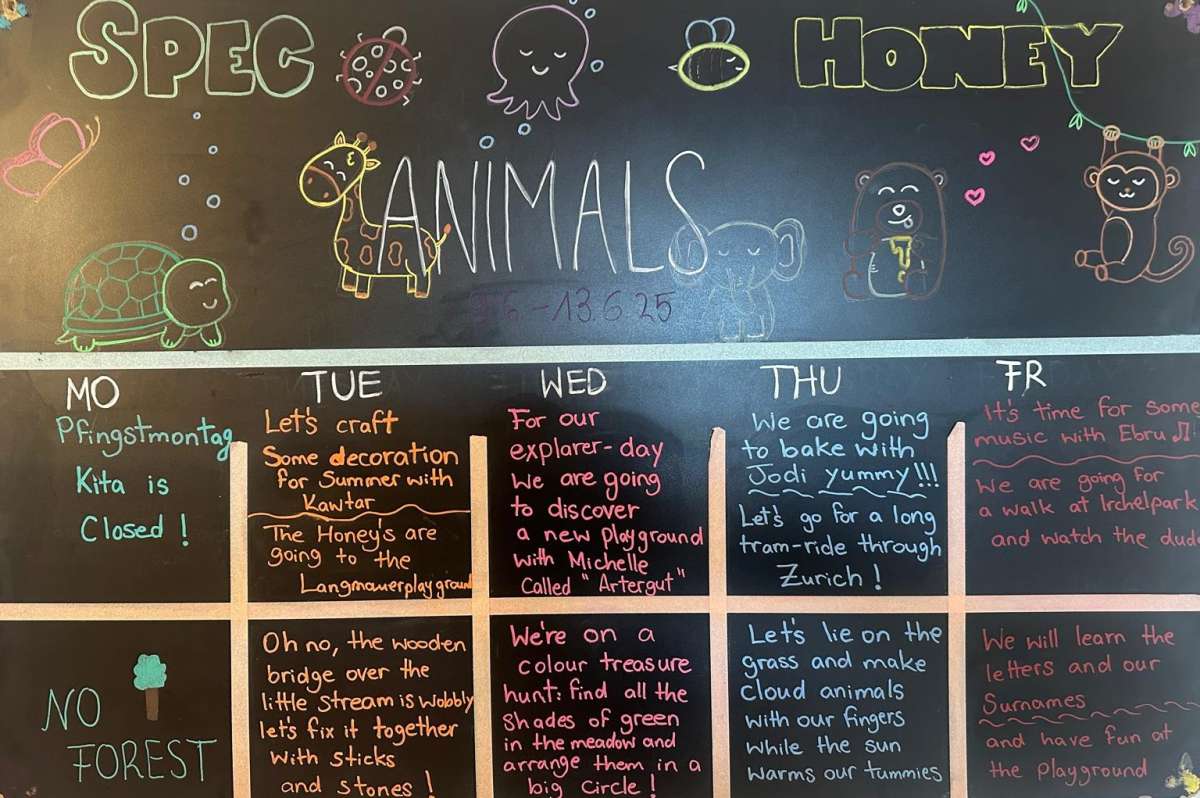 SPEC HONEY
ANIMALS
9.6 - 13.6.25
MO
Pfingstmontag
Kita is
Closed !
TUE
Let's craft
Some decoration
for Summer with
Kawtar
The Honey's are
going to the
Langmauerplayground
WED
For our
explarer-day
we are going
to discover
a new playground
with Michelle
Called "Artergut"
THU
We are going
to bake with
Jodi yummy!!!
Let's go for a long
tram-ride through
Zurich !
FR
It's time for some
music with Ebru ♫
We are going for
a walk at Irchelpark
and watch the
NO
FOREST
Oh no, the wooden
bridge over the
little stream is wobbly
let's fix it together
with sticks
and stones !
We're on a
colour treasure
hunt: find all the
shades of green
in the meadow and
arrange them in a
big Circle !
Let's lie on the
grass and make
cloud animals
with our fingers
while the sun
warms our tummies
We will learn the
letters and our
Surnames
and have fun at
the playground